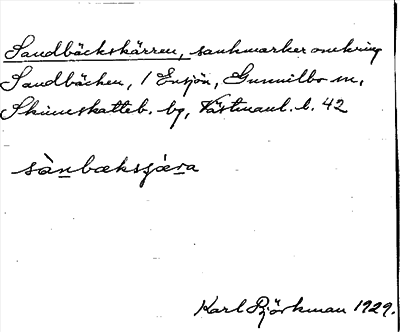 Sandbäckskärren, sankmarker omkring
Sandbäcken, i Ensjön, Gunnilbo sn,
Skinnskatteb. bg, Västmanl. l. 42
sànbæksɟæra
Karl Björkman 1929.